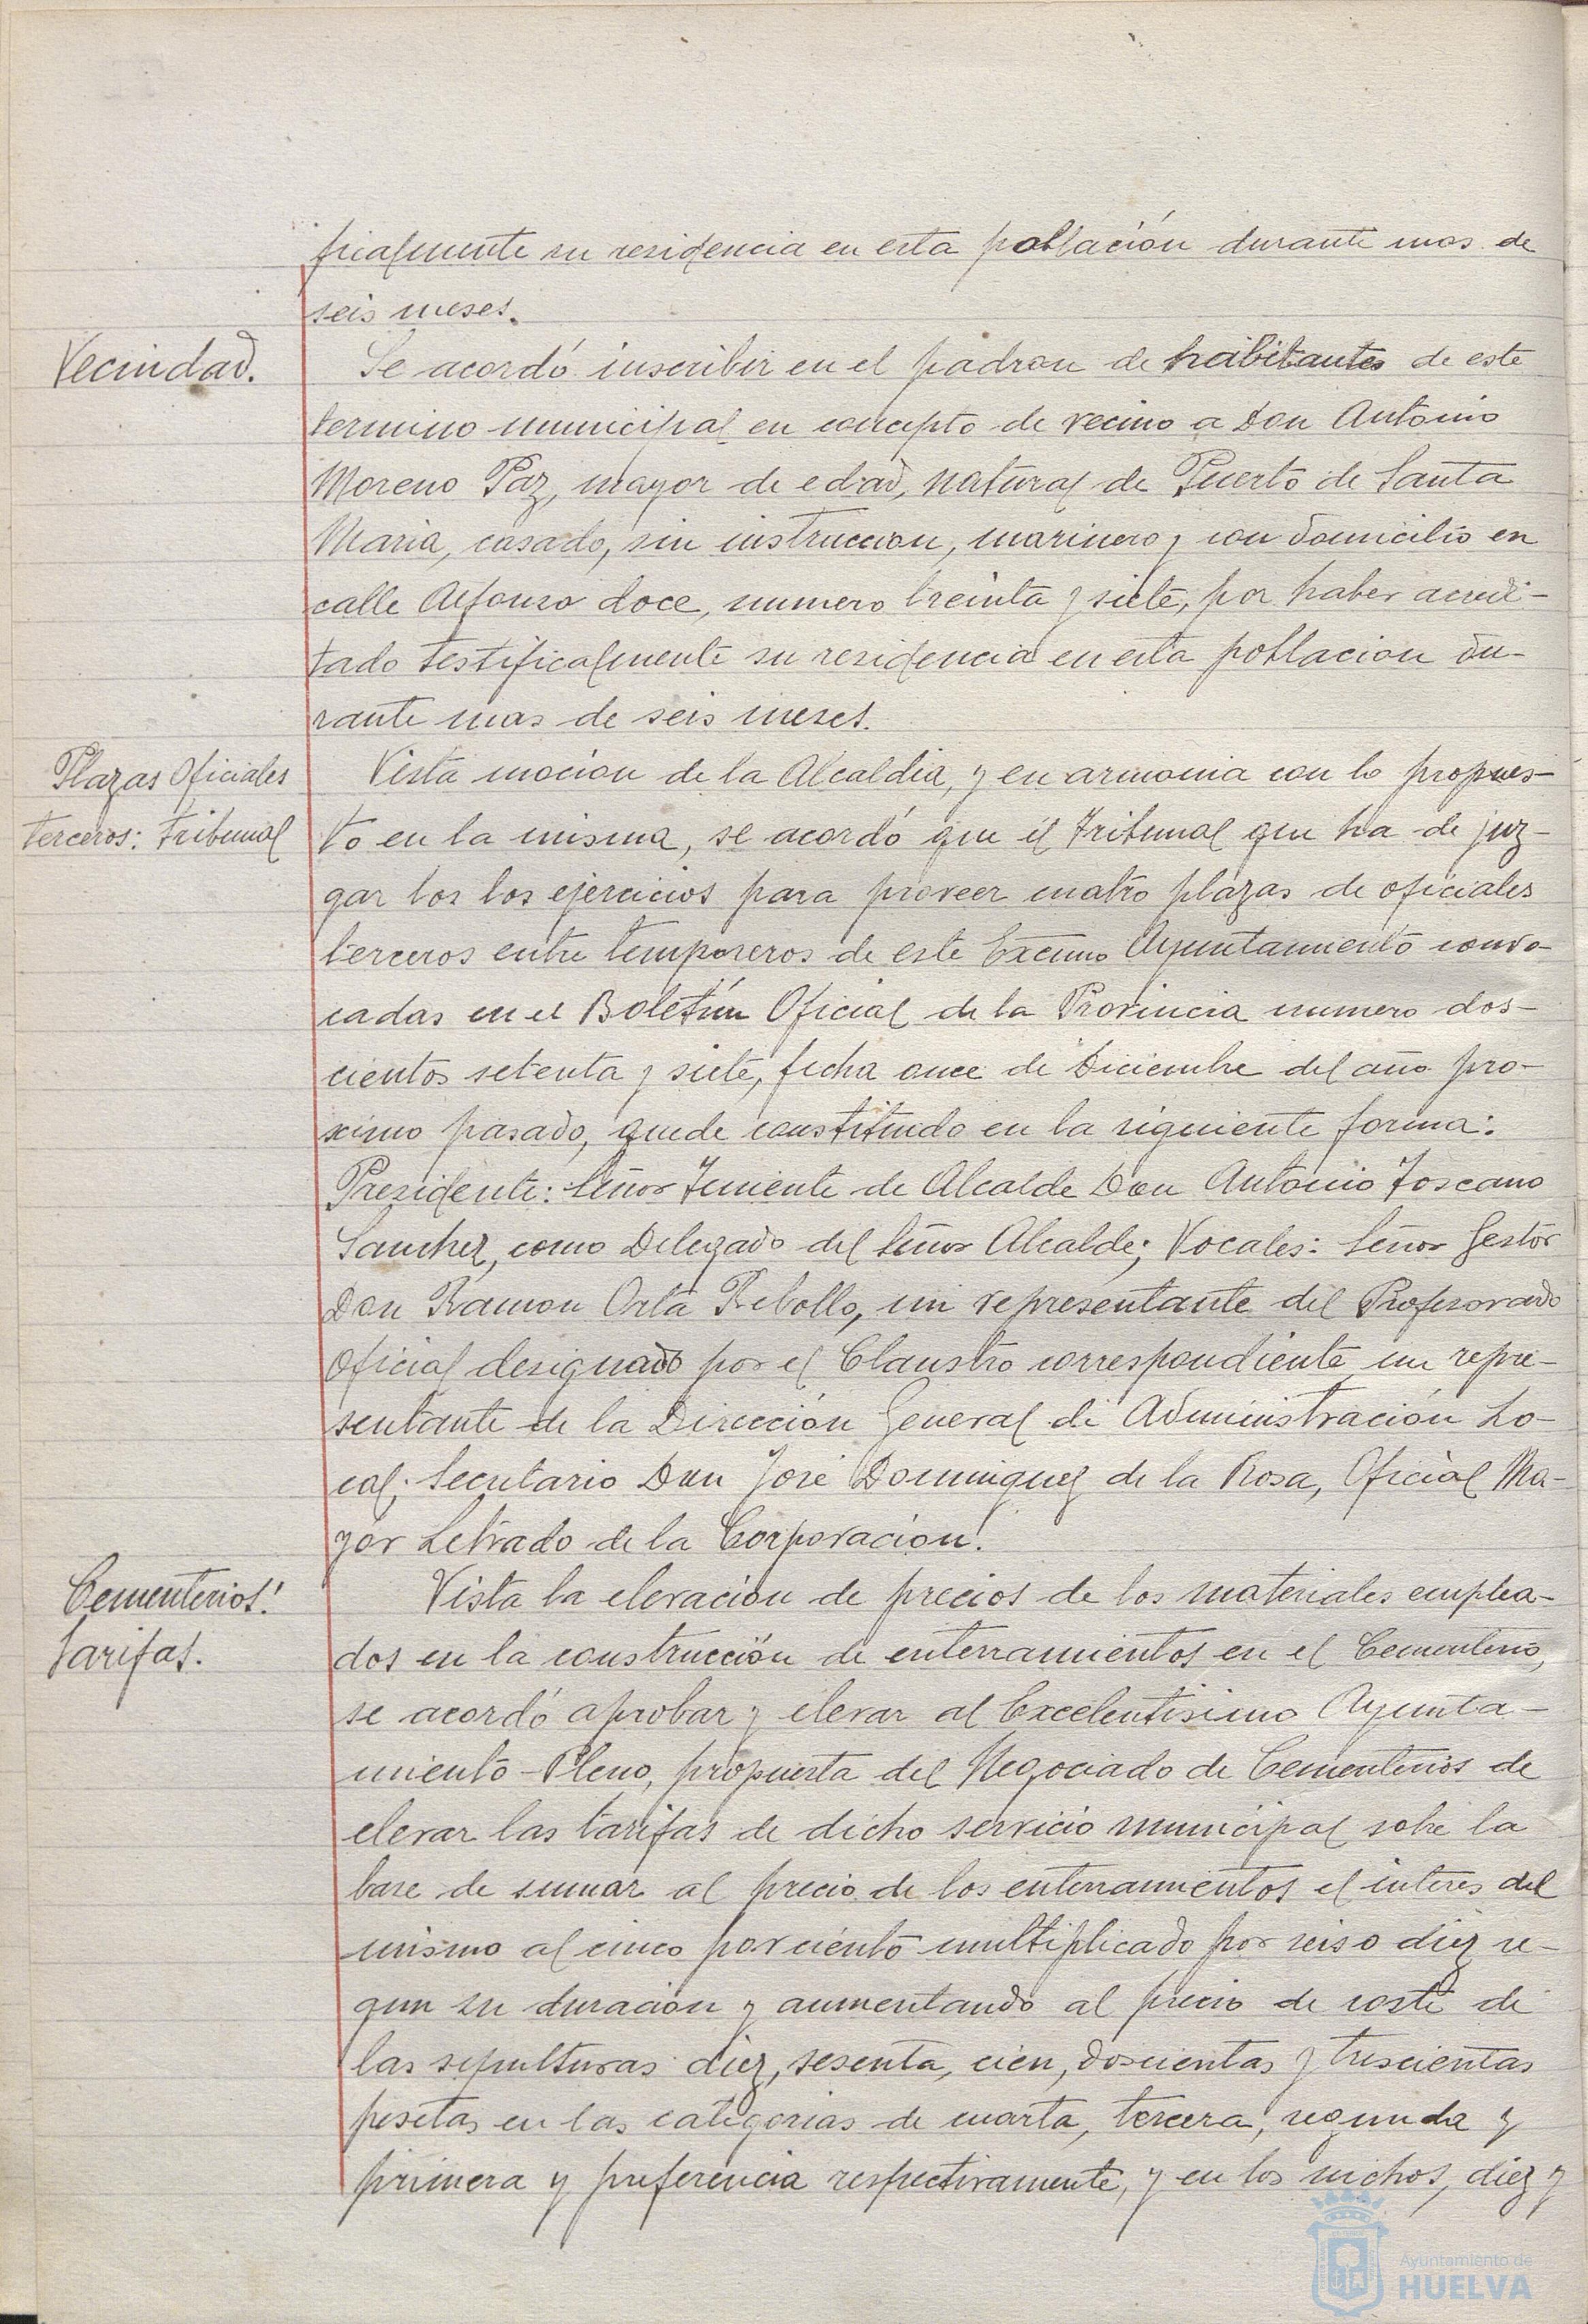 ficialmente su residencia en esta poblacion durante mas de
seis meses.
Vecindad.
Se acordó inscribir en el padron de habitantes de este
termino municipal en concepto de vecino a Don Antonio
Moreno Paz, mayor de edad, natural de Puerto de Santa
Maria, casado, sin instruccion, marinero y con domicilio en
calle Alfonso doce, numero treinta y siete, por haber acredi-
tado testificalmente su residencia en esta poblacion du-
rante mas de seis meses.
Plazas Oficiales
terceros: tribunal
Vista mocion de la Alcaldia, y en armonia con lo propues-
to en la misma, se acordó que el tribunal que ha de juz-
gar los los ejercicios para proveer cuatro plazas de oficiales
terceros entre temporeros de este Excmo Ayuntamiento convo-
cadas en el Boletín Oficial de la Provincia numero dos-
cientos setenta y siete, fecha once de Diciembre del año pro-
ximo pasado, quede constituido en la siguiente forma:
Presidente: Señor Teniente de Alcalde Don Antonio Toscano
Sanchez, como Delegado del Señor Alcalde; Vocales: Señor Gestor
Don Ramon Orta Rebollo, un representante del Profesorado
Oficial designado por el Claustro correspondiente un repre-
sentante de la Dirección General de Administración Lo-
cal; Secretario Don José Dominguez de la Rosa, Oficial Ma-
yor Letrado de la Corporacion.
Cementerios:
tarifas.
Vista la elevación de precios de los materiales emplea-
dos en la construcción de enterramientos en el Cementerio,
se acordó aprobar y elevar al Excelentisimo Ayunta-
miento-Pleno, propuesta del Negociado de Cementerios de
elevar las tarifas de dicho servicio municipal sobre la
base de sumar al precio de los enterramientos el interes del
mismo al cinco por ciento multiplicado por seis o diez se-
gun su duracion y aumentando al precio de coste de
las sepulturas diez, sesenta, cien, doscientas y trescientas
pesetas en las categorias de cuarta, tercera, segunda y
primera y preferencia respectivamente, y en los nichos, diez y
Ayuntamiento de
HUELVA